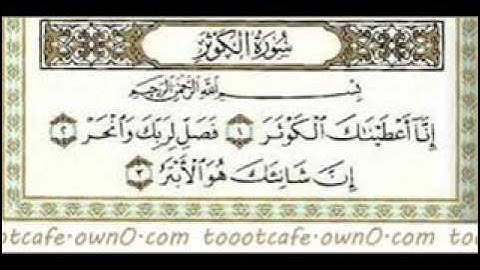 سُورَةُ الْكَوْثَرِ
بِسْمِ اللَّهِ الرَّحْمَٰنِ الرَّحِيمِ
إِنَّا أَعْطَيْنَاكَ الْكَوْثَرَ ١ فَصَلِّ لِرَبِّكَ وَانْحَرْ ٢
إِنَّ شَانِئَكَ هُوَ الْأَبْتَرُ ٣
ootcafe.ownO.com toootcafe.ownO.com tooo